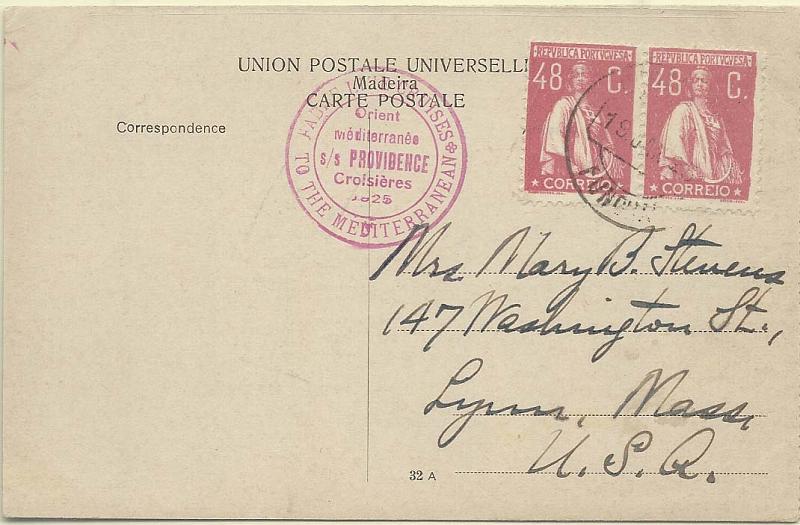 UNION POSTALE UNIVERSELL
Madeira
CARTE POSTALE
Correspondence
CRUISES
TO THE MEDITERRANEAN
Orient
méditerranée
s/s PROVIDENCE
Croisières
1925
REPVBLICA PORTVGVESA
48 C.
CORREIO
REPVBLICA PORTVGVESA
48 C.
CORREIO
Mrs. Mary B. Stevens
147 Washington St.,
Lynn, Mass,
U.S.A.
32 A